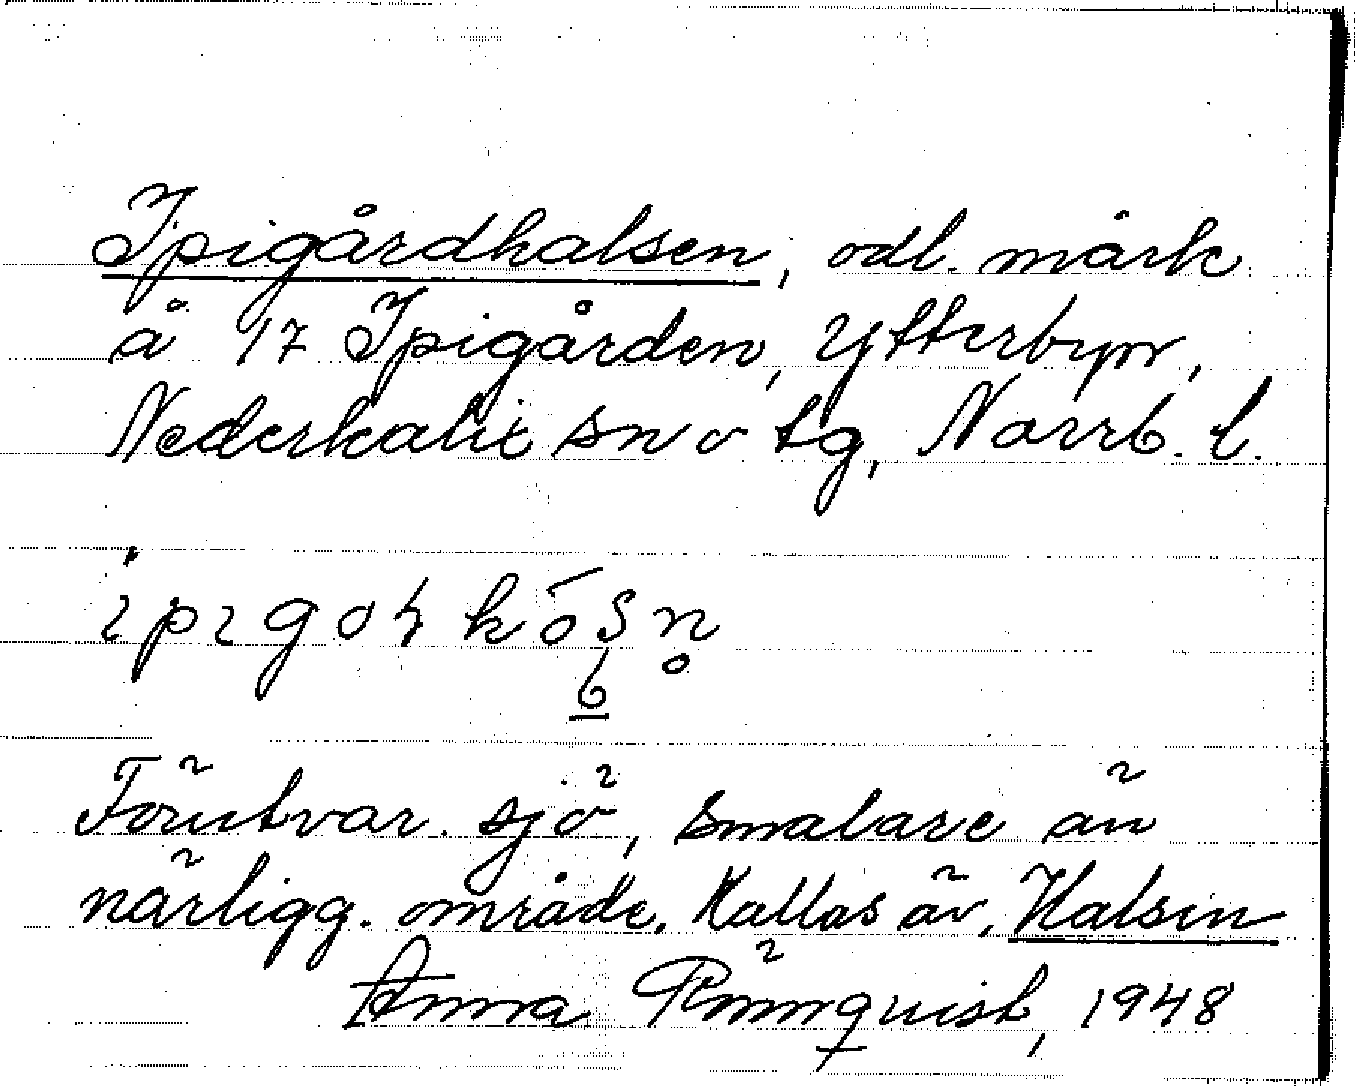 Ipigårdhalsen, odl. mark
å 17 Ipigården, Ytterbyn,
Nederkalix sn o tg, Norrb. l.
Förutvar. sjö, smalare än
närligg. område. Kallas äv. Halsen
Anna Rönnquist, 1948